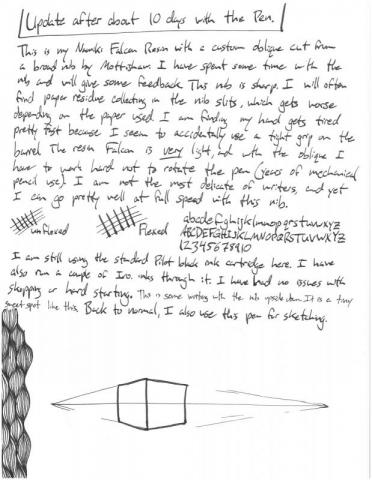 Update after about 10 days with the Pen.
This is my Namiki Falcon Resin with a custom oblique cut from
a broad nib by Mottishaw. I have spent some time with the
nib and will give some feedback. This nib is sharp. I will often
find paper residue collecting in the nib slits, which gets worse
depending on the paper used. I am finding my hand gets tired
pretty fast because I seem to accidentally use a tight grip on the
barrel. The resin Falcon is very light, and with the oblique I
have to work hard not to rotate the pen (years of mechanical
pencil use). I am not the most delicate of writers, and yet
I can go pretty well at full speed with this nib.
unflexed Flexed abcdefghijklmnopqrstuvwxyz
ABCDEFGHIJKLMNOPQRSTUVWXYZ
12345678910
I am still using the standard Pilot black ink cartridge here. I have
also run a couple of Iro. inks through it. I have had no issues with
skipping or hard starting. This is some writing with the nib upside down. It is a tiny
sweet spot like this. Back to normal, I also use this pen for sketching.